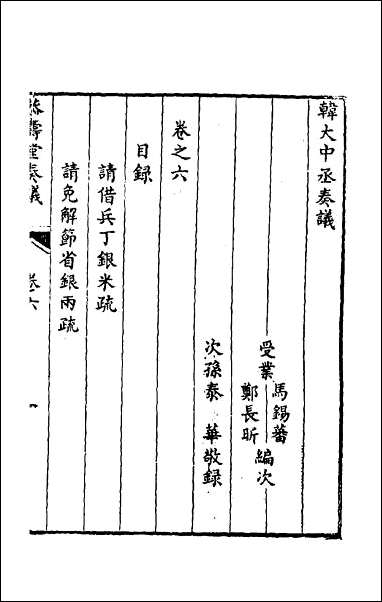 韓大中丞奏議
受業 馬錫蕃
鄭長昕 編次
次孫泰 華敬録
卷之六
目録
請借兵丁銀米疏
請免解節省銀兩疏
壽堂奏議 卷六 一